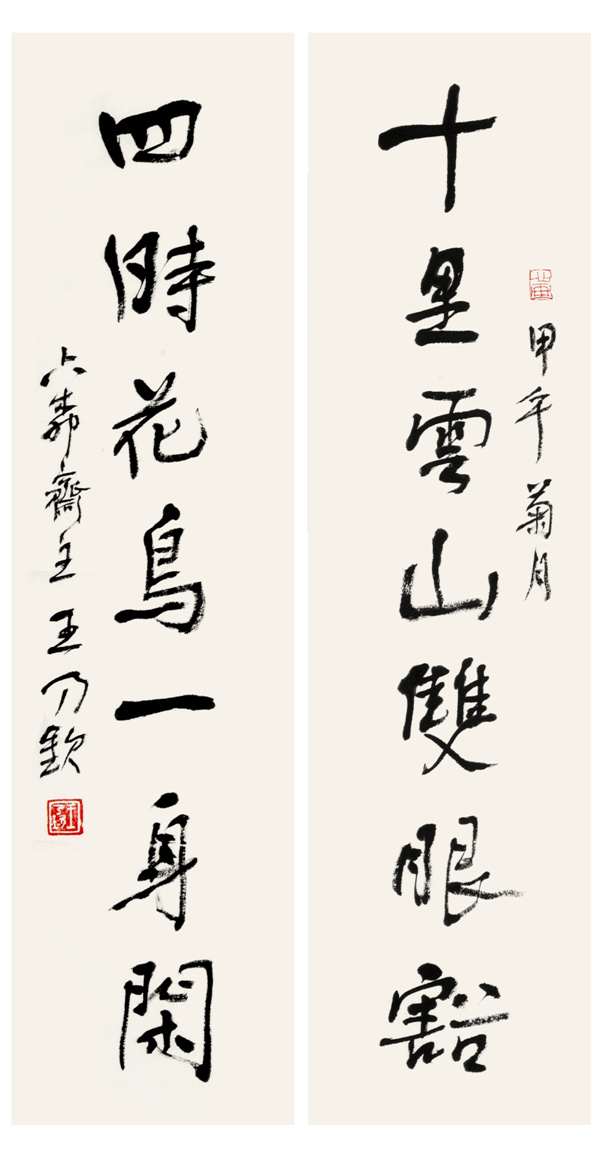 十里雲山雙眼豁
甲午菊月
四時花鳥一身閑
六莽齋主王乃欽